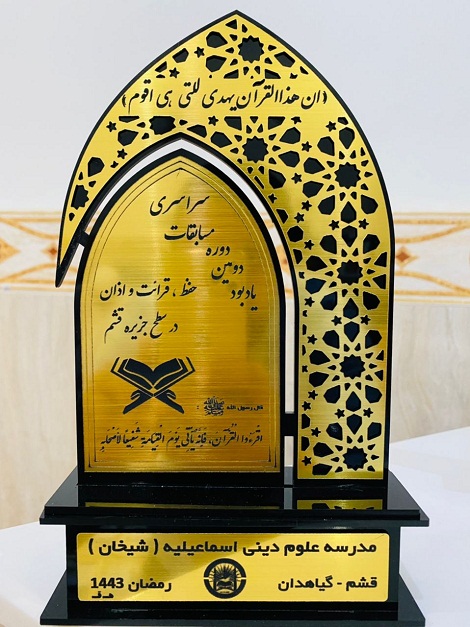 ﴿ان هذا القرآن یهدی للتی هی اقوم﴾
سراسری
مسابقات
دوره
دومین
یادبود
حفظ ، قرائت و اذان
در سطح جزیره قشم
قال رسول الله ﷺ :
اقرءوا القرآن، فإنه یأتی یوم القیامة شفیعا لأصحابه
مدرسه علوم دینی اسماعیلیه ( شیخان )
قشم - گیاهدان
رمضان 1443
هـ.ق